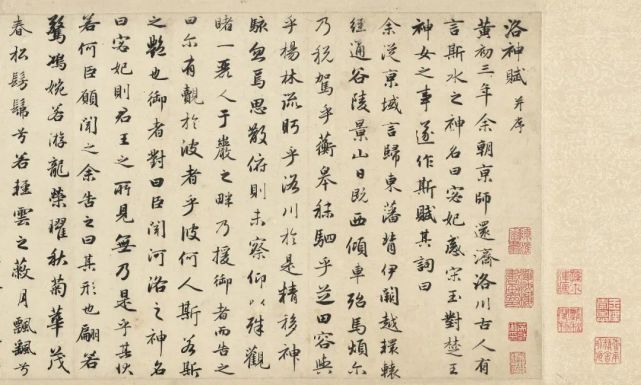 洛神賦 并序
黃初三年余朝京師還濟洛川古人有
言斯水之神名曰宓妃感宋玉對楚王
神女之事遂作斯賦其詞曰
余從京域言歸東藩背伊闕越轘轅
經通谷陵景山日既西傾車殆馬煩尔
乃稅駕乎蘅皋秣駟乎芝田容與
乎楊林流眄乎洛川於是精移神
駭忽焉思散俯則未察仰以殊觀
睹一麗人于巖之畔乃援御者而告之
曰尔有覿於彼者乎彼何人斯若斯
之艷也御者對曰臣聞河洛之神名
曰宓妃則君王之所見無乃是乎其狀
若何臣願聞之余告之曰其形也翩若
驚鴻婉若游龍榮耀秋菊華茂
春松髣髴兮若輕雲之蔽月飄颻兮